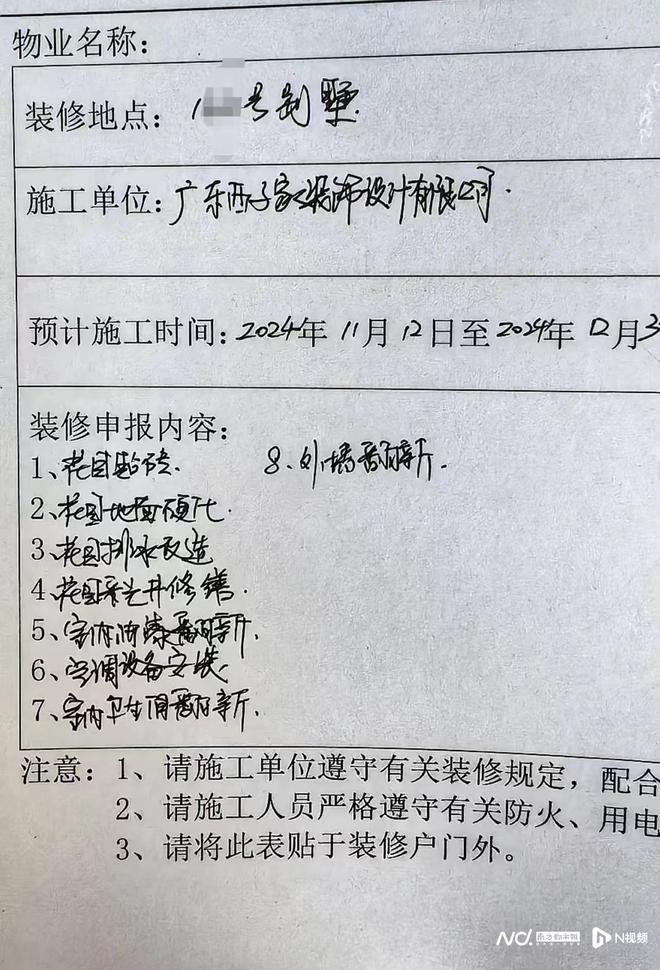 物业名称：
装修地点：1 号别墅
施工单位：广东西子家装饰设计有限公司.
预计施工时间：2024年 11月 12日至2024年 12月3
装修申报内容：
1、花园贴砖. 8、外墙翻新.
2、花园地面硬化.
3、花园排水改造
4、花园采光井修缮.
5、室内油漆翻新.
6、空调设备安装
7、室内卫生间翻新.
注意：1、请施工单位遵守有关装修规定，配合
2、请施工人员严格遵守有关防火、用电
3、请将此表贴于装修户门外。
N视频